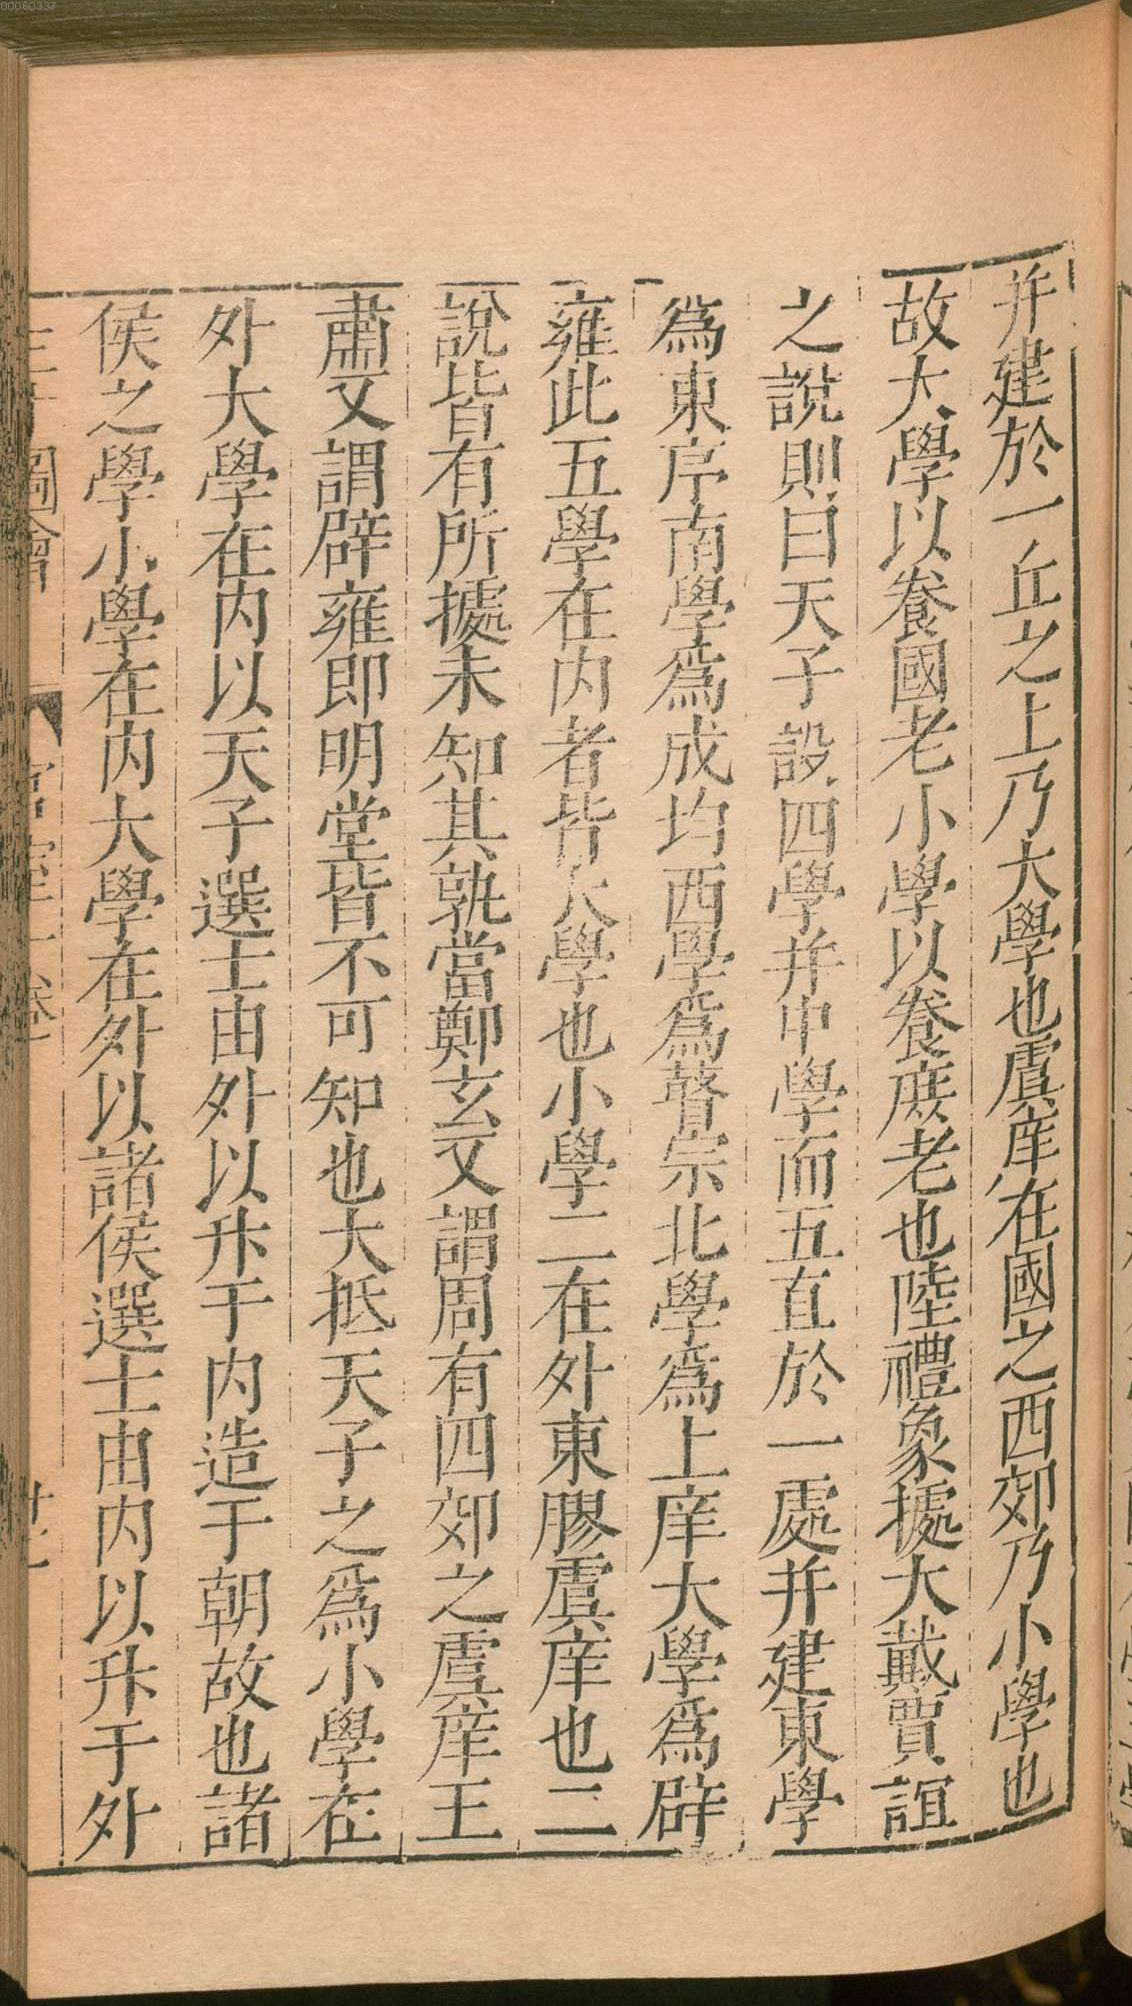 并建於一丘之上乃大學也虞庠在國之西郊乃小學也
故大學以養國老小學以養庶老也陸禮象據大戴賈誼
之說則曰天子設四學并中學而五直於一處并建東學
為東序南學為成均西學為瞽宗北學為上庠大學為辟
雍此五學在内者皆大學也小學二在外東膠虞庠也二
說皆有所據未知其孰當鄭玄又謂周有四郊之虞庠王
肅又謂辟雍即明堂皆不可知也大抵天子之為小學在
外大學在内以天子選士由外以升于内造于朝故也諸
侯之學小學在内大學在外以諸侯選士由内以升于外
圖會 宮室一卷
00060337